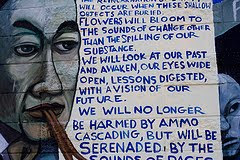 WILL OCCUR WHEN THESE SHALLOW
OBJECTS ARE BURIED.
FLOWERS WILL BLOOM TO
THE SOUNDS OF CHANGE OTHER
THAN THE SPILLING OF OUR
SUBSTANCE.
WE WILL LOOK AT OUR PAST
AND AWAKEN, OUR EYES WIDE
OPEN, LESSONS DIGESTED,
WITH A VISION OF OUR
FUTURE.
WE WILL NO LONGER
BE HARMED BY AMMO
CASCADING, BUT WILL BE
SERENADED, BY THE
SOUNDS OF